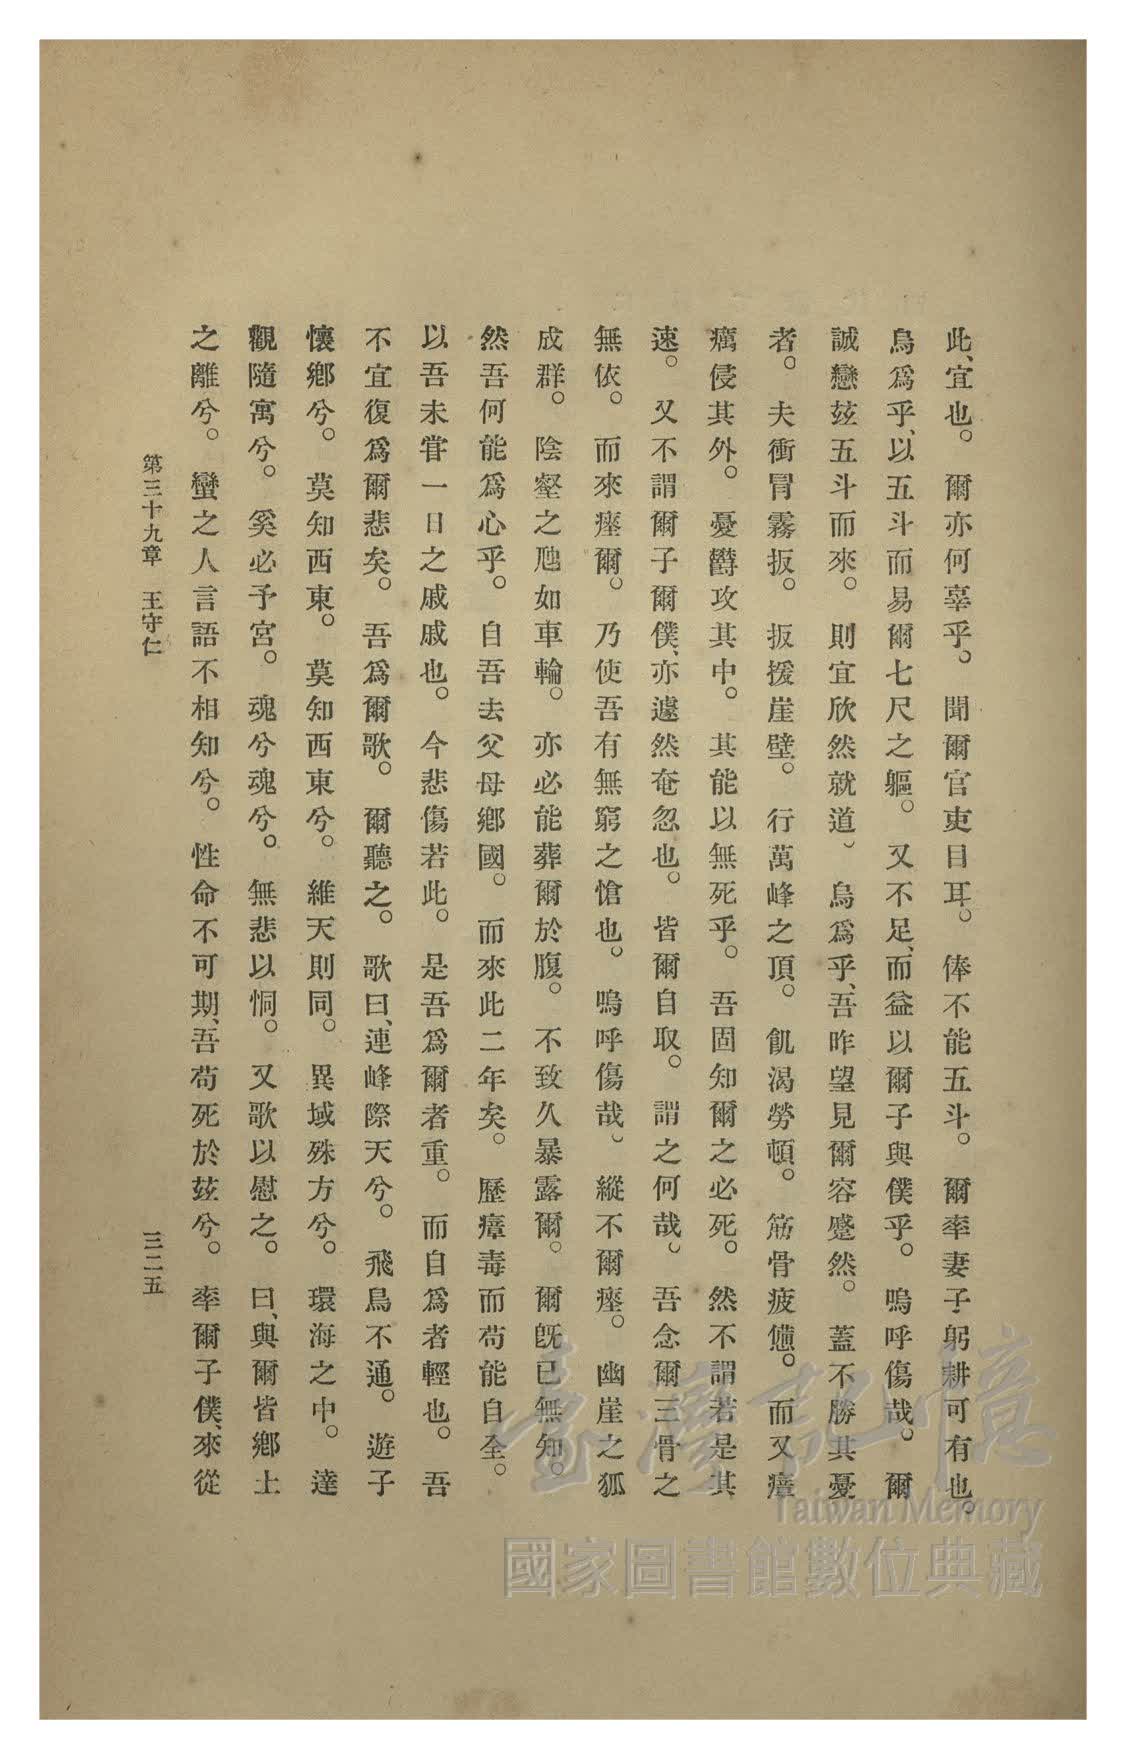 此、宜也。爾亦何辜乎。聞爾官吏目耳。俸不能五斗。爾率妻子躬耕可有也。
烏爲乎、以五斗而易爾七尺之軀。又不足、而益以爾子與僕乎。嗚呼傷哉。爾
誠戀玆五斗而來。則宜欣然就道、烏爲乎、吾昨望見爾容蹙然。蓋不勝其憂
者。夫衝冒霧扳。扳援崖壁。行萬峰之頂。飢渴勞頓。筋骨疲憊。而又瘴
癘侵其外。憂鬱攻其中。其能以無死乎。吾固知爾之必死。然不謂若是其
速。又不謂爾子爾僕、亦遽然奄忽也。皆爾自取。謂之何哉。吾念爾三骨之
無依。而來瘞爾。乃使吾有無窮之愴也。嗚呼傷哉。縱不爾瘞。幽崖之狐
成群。陰壑之虺如車輪。亦必能葬爾於腹。不致久暴露爾。爾既已無知。
然吾何能爲心乎。自吾去父母鄕國。而來此二年矣。歷瘴毒而苟能自全。
以吾未甞一日之戚戚也。今悲傷若此。是吾爲爾者重。而自爲者輕也。吾
不宜復爲爾悲矣。吾爲爾歌。爾聽之。歌曰、連峰際天兮。飛鳥不通。遊子
懷鄕兮。莫知西東。莫知西東兮。維天則同。異域殊方兮。環海之中。達
觀隨寓兮。奚必予宮。魂兮魂兮。無悲以恫。又歌以慰之。曰、與爾皆鄕土
之離兮。蠻之人言語不相知兮。性命不可期、吾苟死於玆兮。率爾子僕、來從
第三十九章 王守仁 三二五
臺灣記憶
Taiwan Memory
國家圖書館數位典藏